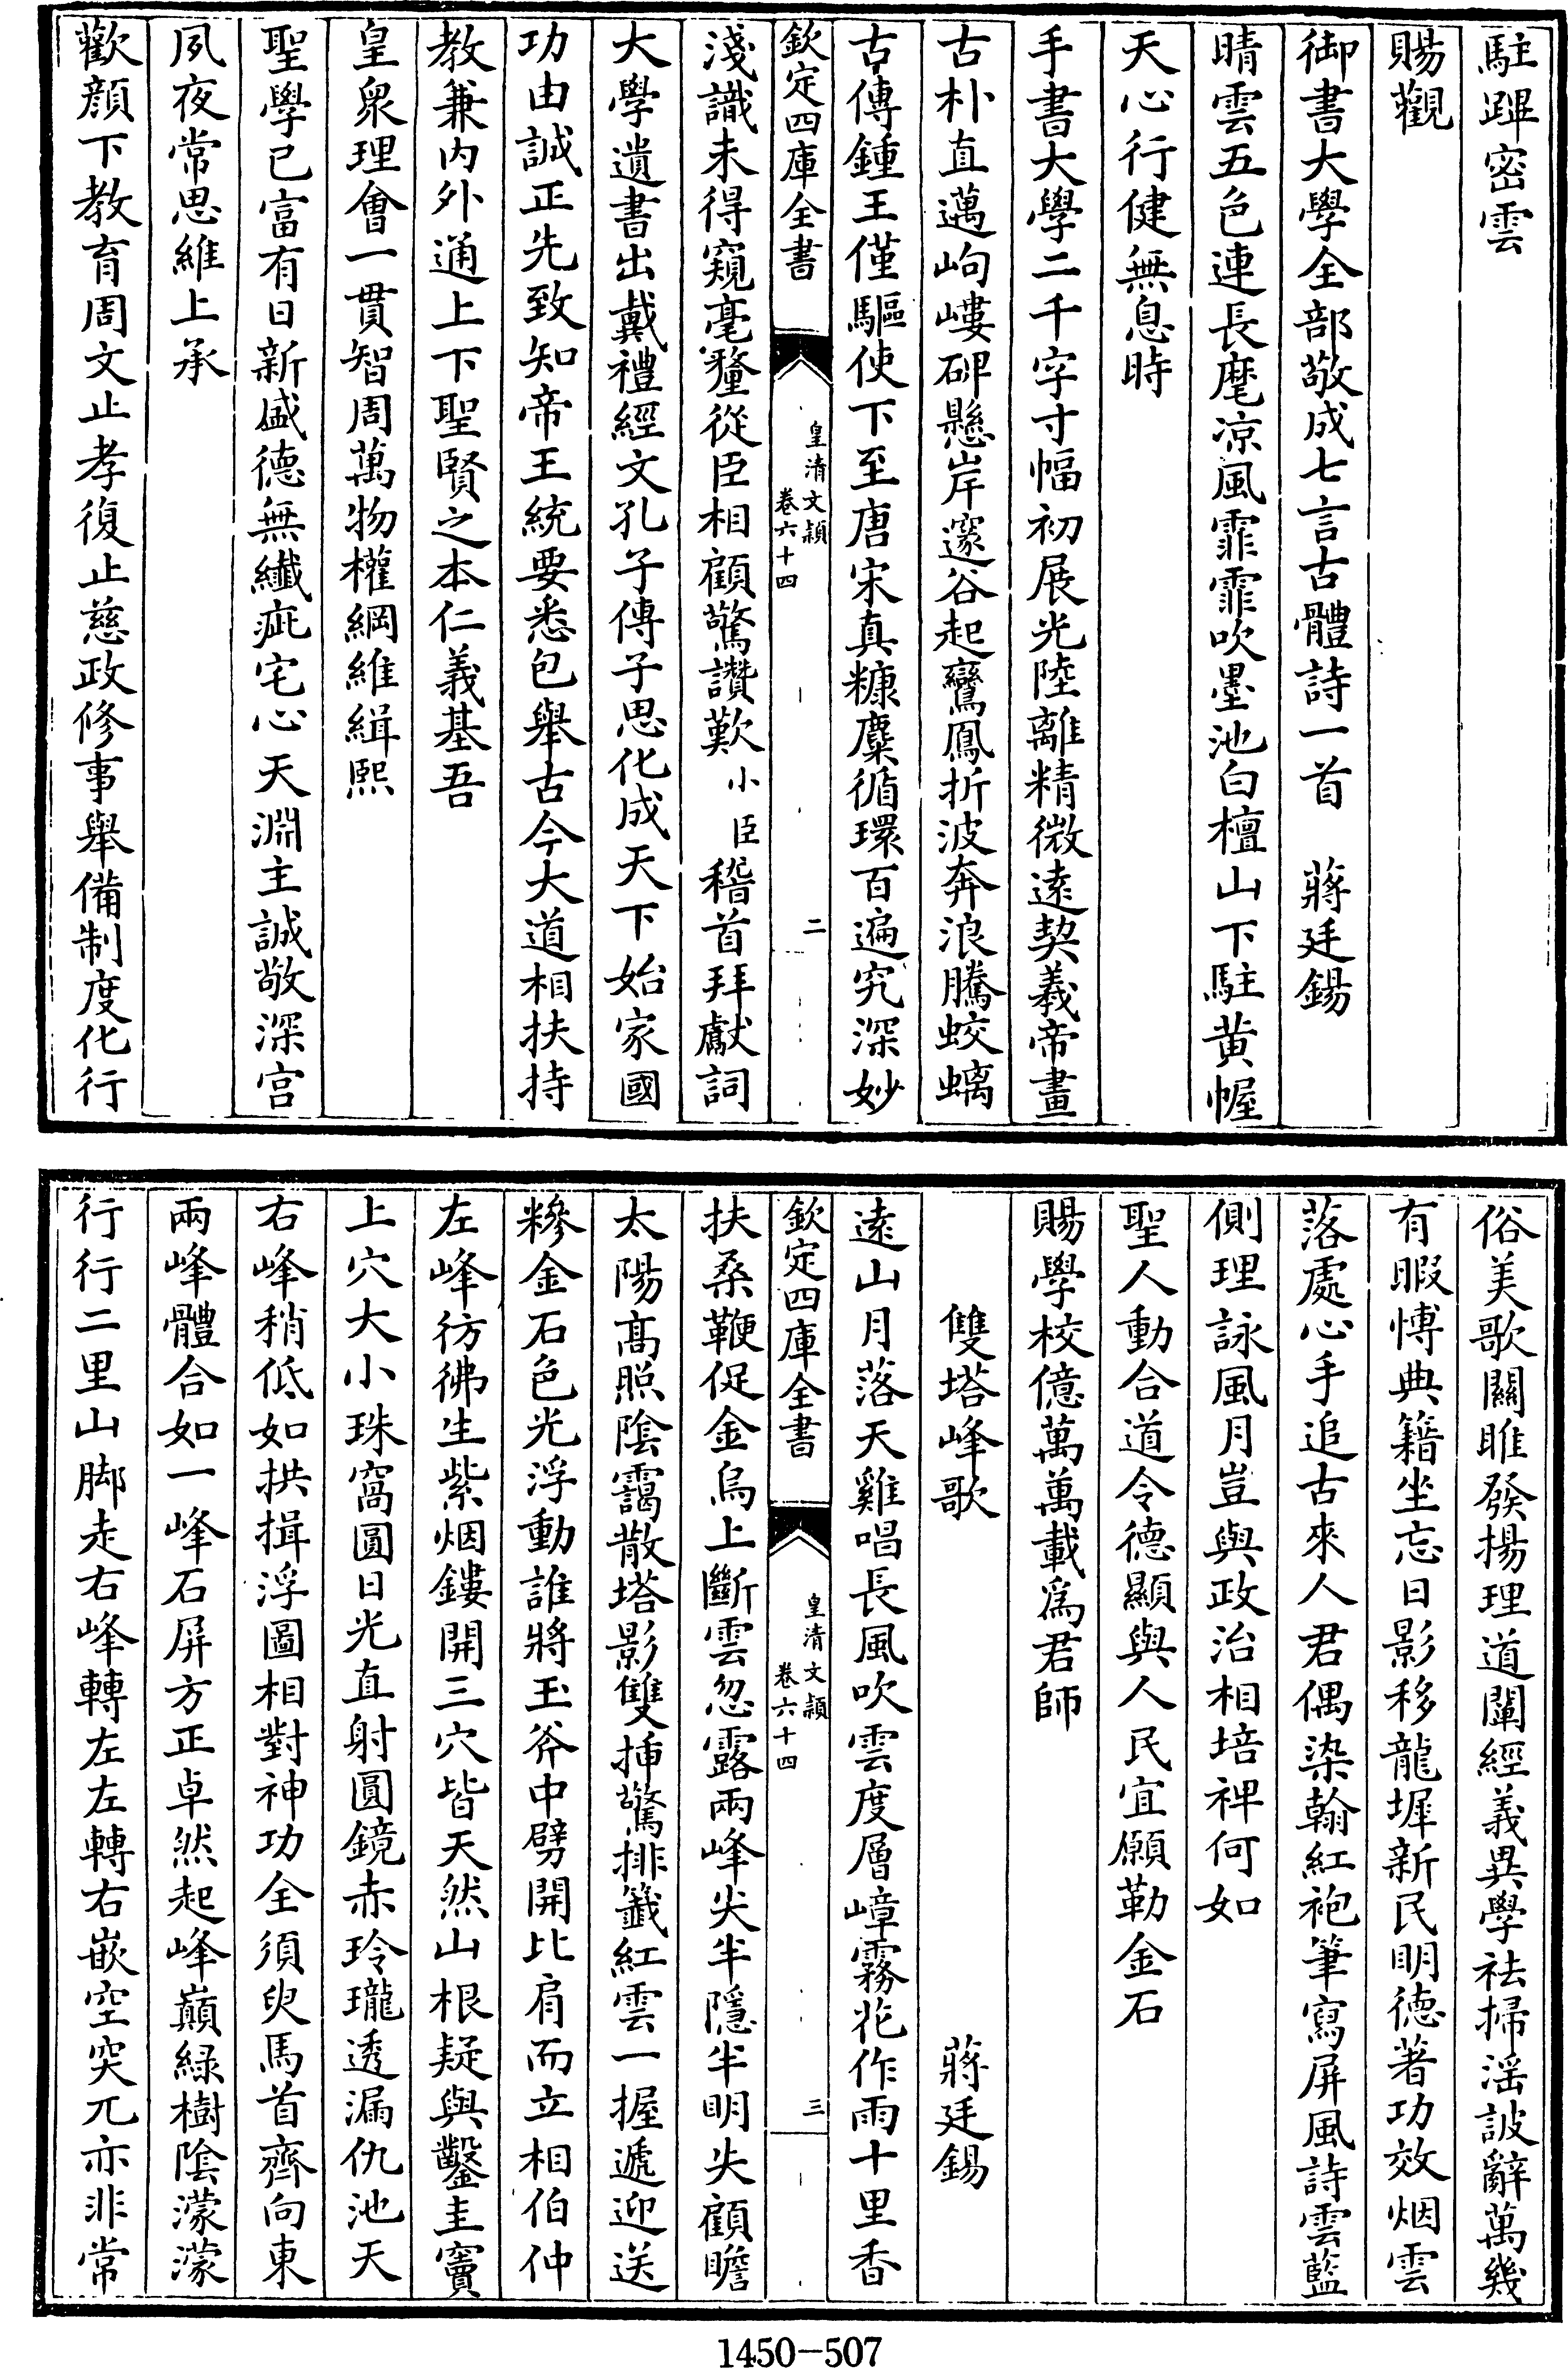 駐蹕密雲
賜觀
御書大學全部敬成七言古體詩一首　蔣廷錫
晴雲五色連長麾涼風霏霏吹墨池白檀山下駐黄幄
天心行健無息時
手書大學二千字寸幅初展光陸離精微遠契羲帝畫
古朴直邁岣嶁碑懸岸邃谷起鸞鳳折波奔浪騰蛟螭
古傳鍾王僅驅使下至唐宋真糠麋循環百遍究深妙
欽定四庫全書
皇清文穎
卷六十四
二
淺識未得窺毫釐從臣相顧驚讚歎小臣稽首拜獻詞
大學遺書出戴禮經文孔子傳子思化成天下始家國
功由誠正先致知帝王統要悉包舉古今大道相扶持
教兼内外通上下聖賢之本仁義基吾
皇衆理會一貫智周萬物權綱維緝熙
聖學已富有日新盛德無纖疵宅心天淵主誠敬深宫
夙夜常思維上承
歡顔下教育周文止孝復止慈政修事舉備制度化行
俗美歌關雎發揚理道闡經義異學袪掃滛詖辭萬幾
有暇愽典籍坐忘日影移龍墀新民明徳著功效烟雲
落處心手追古來人君偶染翰紅袍筆寫屏風詩雲藍
側理詠風月豈與政治相培裨何如
聖人動合道令德顯與人民宜願勒金石
賜學校億萬萬載爲君師
雙塔峰歌　蔣廷錫
遠山月落天雞唱長風吹雲度層嶂霧花作雨十里香
欽定四庫全書
皇清文穎
卷六十四
三
扶桑鞭促金烏上斷雲忽露兩峰尖半隱半明失顧瞻
太陽髙照陰靄散塔影雙挿驚排籖紅雲一握遞迎送
糝金石色光浮動誰將玉斧中劈開比肩而立相伯仲
左峰彷彿生紫烟鏤開三穴皆天然山根疑與鑿圭竇
上穴大小珠窩圓日光直射圓鏡赤玲瓏透漏仇池天
右峰稍低如拱揖浮圖相對神功全須臾馬首齊向東
兩峰體合如一峰石屏方正卓然起峰巔緑樹陰濛濛
行行二里山脚走右峰轉左左轉右嵌空突兀亦非常
1450-507